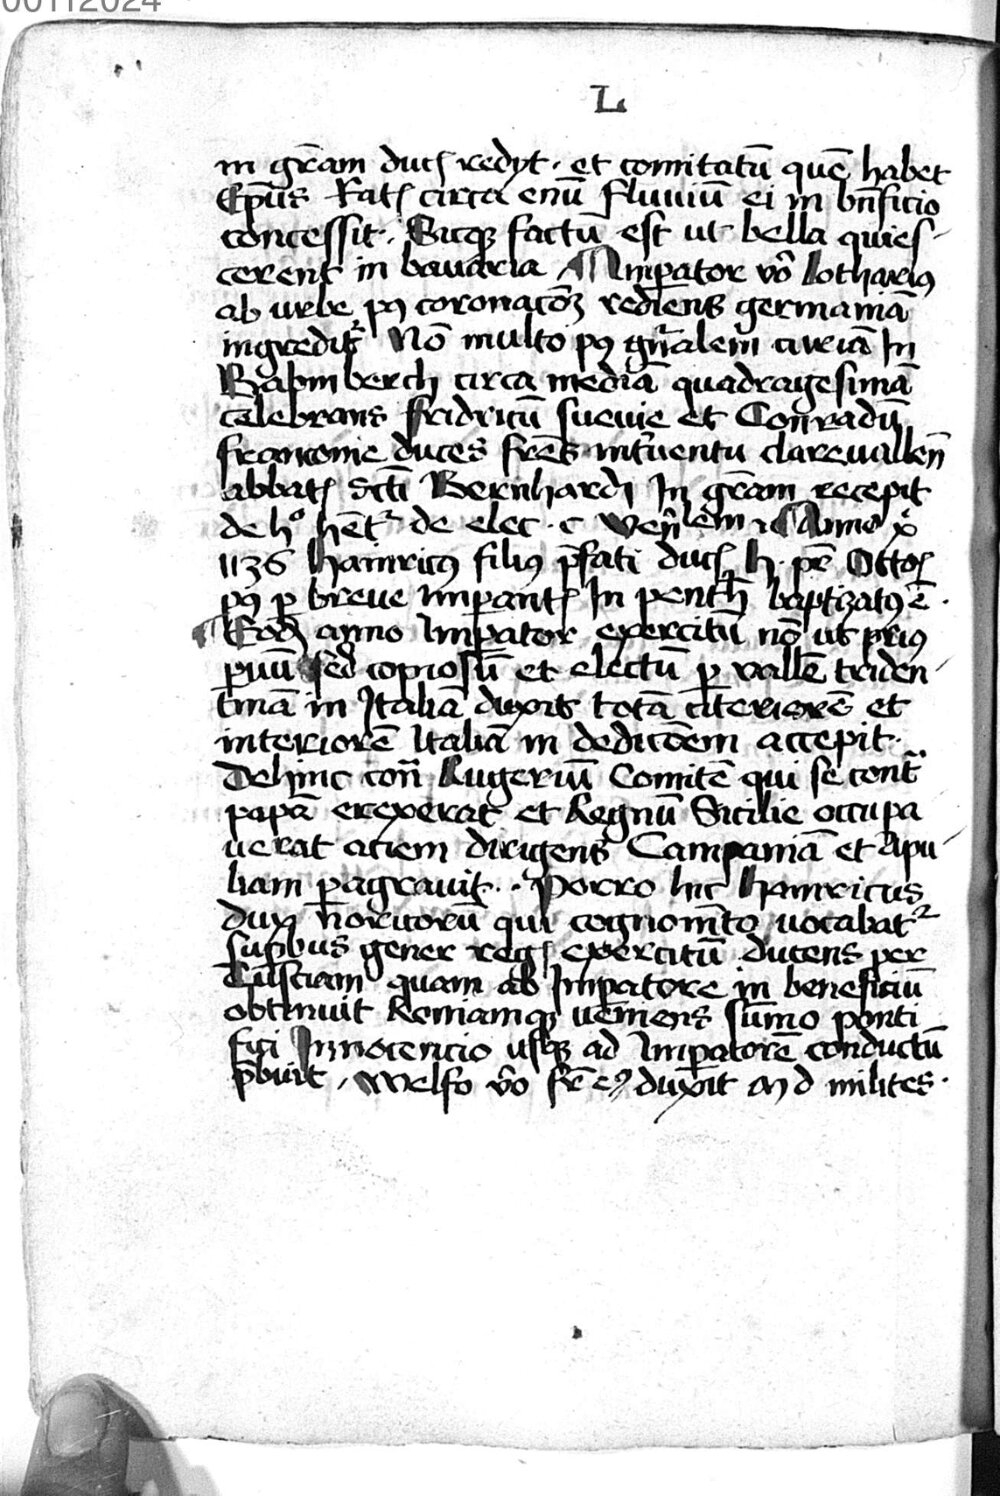 00112024
L
in gr̄am ducꝭ redyt · et comitatū quē habet
Ep̄us Ratꝭ circa enū fluuiū ei in bn̄ficio
concessit · Sicqꝫ factū est ut bella quies-
cerent in bauaria / Imꝑator v̄o Lotharius
ab urbe pꝰ coronacōꝫ rediens germaniā
ingredit᷑ Nō multo pꝰ gn̄alem curiā In
Babinberch circa mediā quadragesimā
celebrans fridricū Sueuie et Conradū
franconie duces fr̄es int̄uentu clareuallen̄
abbatꝭ Scti Bernhardi In gr̄am recepit
de hᵒ hēt᷑ de elec · c
1136 Hainricꝰ filiꝰ p̄fati ducꝭ h · pr̄e Ottoꝭ
pꝰ ꝑ breue Imꝑantꝭ In penth̄ baptizatꝰ ē ·
Eodē anno Imꝑator exercitū nō ut priꝰ
ꝑuū sed copiosū et electū ꝑ vallē triden-
tinā in Italiā duxit totā citeriorē et
interiorē Italiā in dedicōem accepit ·
Dehinc con̄ Rugeriū Comitē qui se cont᷑
papā erexerat et Regnū Sicilie occupa
uerat aciem dirigens Campaniā et Apu-
liam ꝑagrauit · Porro hic Hainricus
dux noricorū qui cognom̄to vocabat᷑
supbus gener regꝭ exercitū ducens per
Tusciam quam ab Imꝑatore in beneficiū
obtinuit Romamqꝫ veniens sūmo ponti
fici Innocencio usqꝫ ad Imꝑatorē conductū
p̄buit / Welfo v̄o fr̄ eꝰ duxit milites ·